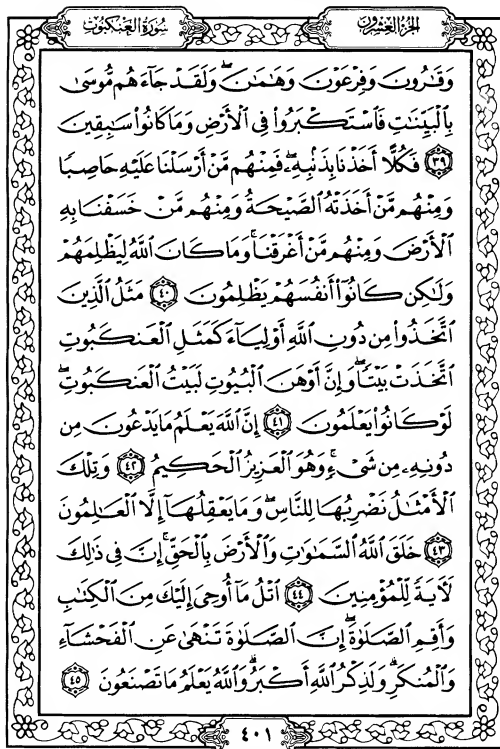 الجزء العشرون
سورة العنكبوت
وَقَٰرُونَ وَفِرْعَوْنَ وَهَٰمَٰنَۖ وَلَقَدْ جَآءَهُم مُّوسَىٰ
بِٱلْبَيِّنَٰتِ فَٱسْتَكْبَرُوا۟ فِى ٱلْأَرْضِ وَمَا كَانُوا۟ سَٰبِقِينَ
٣٩ فَكُلًّا أَخَذْنَا بِذَنۢبِهِۦۖ فَمِنْهُم مَّنْ أَرْسَلْنَا عَلَيْهِ حَاصِبًا
وَمِنْهُم مَّنْ أَخَذَتْهُ ٱلصَّيْحَةُ وَمِنْهُم مَّنْ خَسَفْنَا بِهِ
ٱلْأَرْضَ وَمِنْهُم مَّنْ أَغْرَقْنَاۚ وَمَا كَانَ ٱللَّهُ لِيَظْلِمَهُمْ
وَلَٰكِن كَانُوٓا۟ أَنفُسَهُمْ يَظْلِمُونَ ٤٠ مَثَلُ ٱلَّذِينَ
ٱتَّخَذُوا۟ مِن دُونِ ٱللَّهِ أَوْلِيَآءَ كَمَثَلِ ٱلْعَنكَبُوتِ
ٱتَّخَذَتْ بَيْتًاۖ وَإِنَّ أَوْهَنَ ٱلْبُيُوتِ لَبَيْتُ ٱلْعَنكَبُوتِۖ
لَوْ كَانُوا۟ يَعْلَمُونَ ٤١ إِنَّ ٱللَّهَ يَعْلَمُ مَا يَدْعُونَ مِن
دُونِهِۦ مِن شَىْءٍۚ وَهُوَ ٱلْعَزِيزُ ٱلْحَكِيمُ ٤٢ وَتِلْكَ
ٱلْأَمْثَٰلُ نَضْرِبُهَا لِلنَّاسِۖ وَمَا يَعْقِلُهَآ إِلَّا ٱلْعَٰلِمُونَ
٤٣ خَلَقَ ٱللَّهُ ٱلسَّمَٰوَٰتِ وَٱلْأَرْضَ بِٱلْحَقِّۚ إِنَّ فِى ذَٰلِكَ
لَءَايَةً لِّلْمُؤْمِنِينَ ٤٤ ٱتْلُ مَآ أُوحِىَ إِلَيْكَ مِنَ ٱلْكِتَٰبِ
وَأَقِمِ ٱلصَّلَوٰةَۖ إِنَّ ٱلصَّلَوٰةَ تَنْهَىٰ عَنِ ٱلْفَحْشَآءِ
وَٱلْمُنكَرِۗ وَلَذِكْرُ ٱللَّهِ أَكْبَرُۗ وَٱللَّهُ يَعْلَمُ مَا تَصْنَعُونَ ٤٥
٤٠١